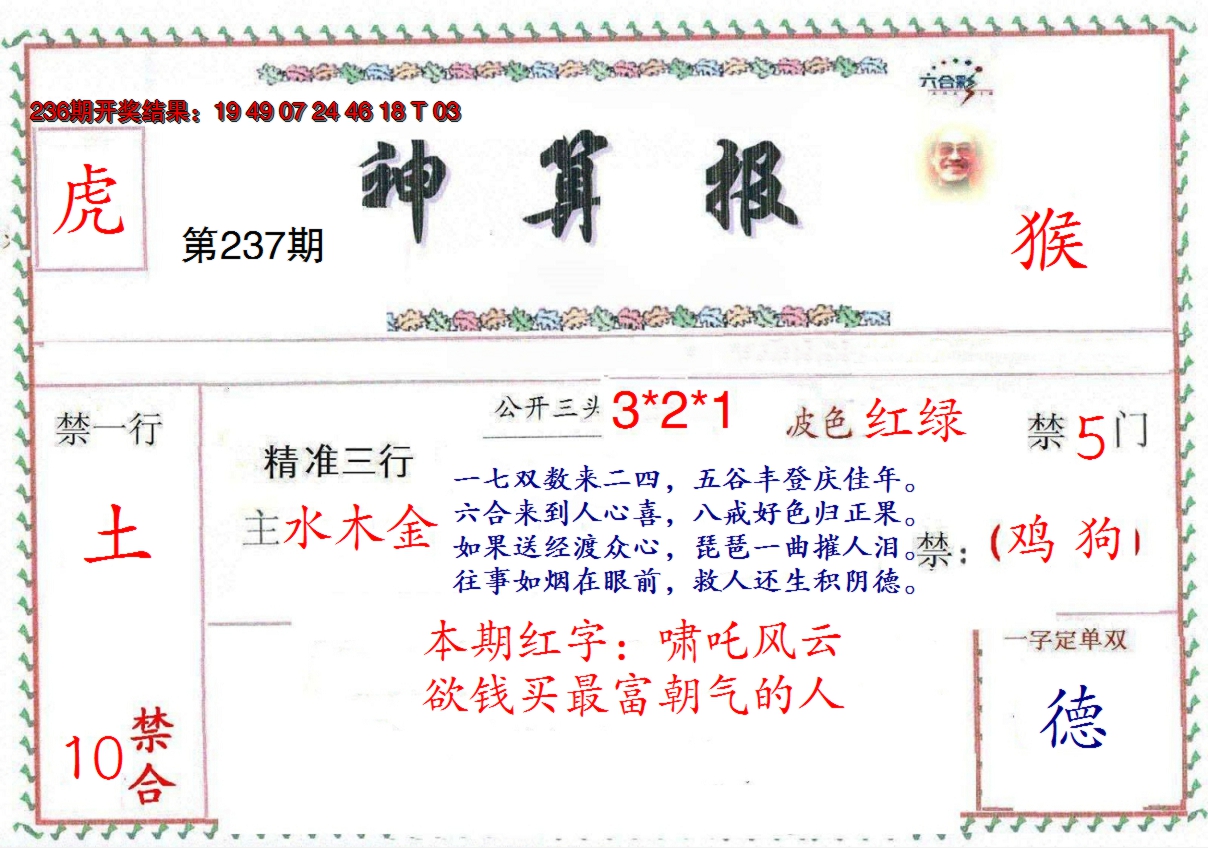 六合彩
236期开奖结果：19 49 07 24 46 18 T 03
虎
神算报
第237期
猴
禁一行
土
10
禁合
公开三头 3*2*1
波色 红绿
禁5门
精准三行
主水木金
一七双数来二四，五谷丰登庆佳年。
六合来到人心喜，八戒好色归正果。
如果送经渡众心，琵琶一曲摧人泪。
往事如烟在眼前，救人还生积阴德。
禁：（鸡 狗）
本期红字：啸吒风云
欲钱买最富朝气的人
一字定单双
德